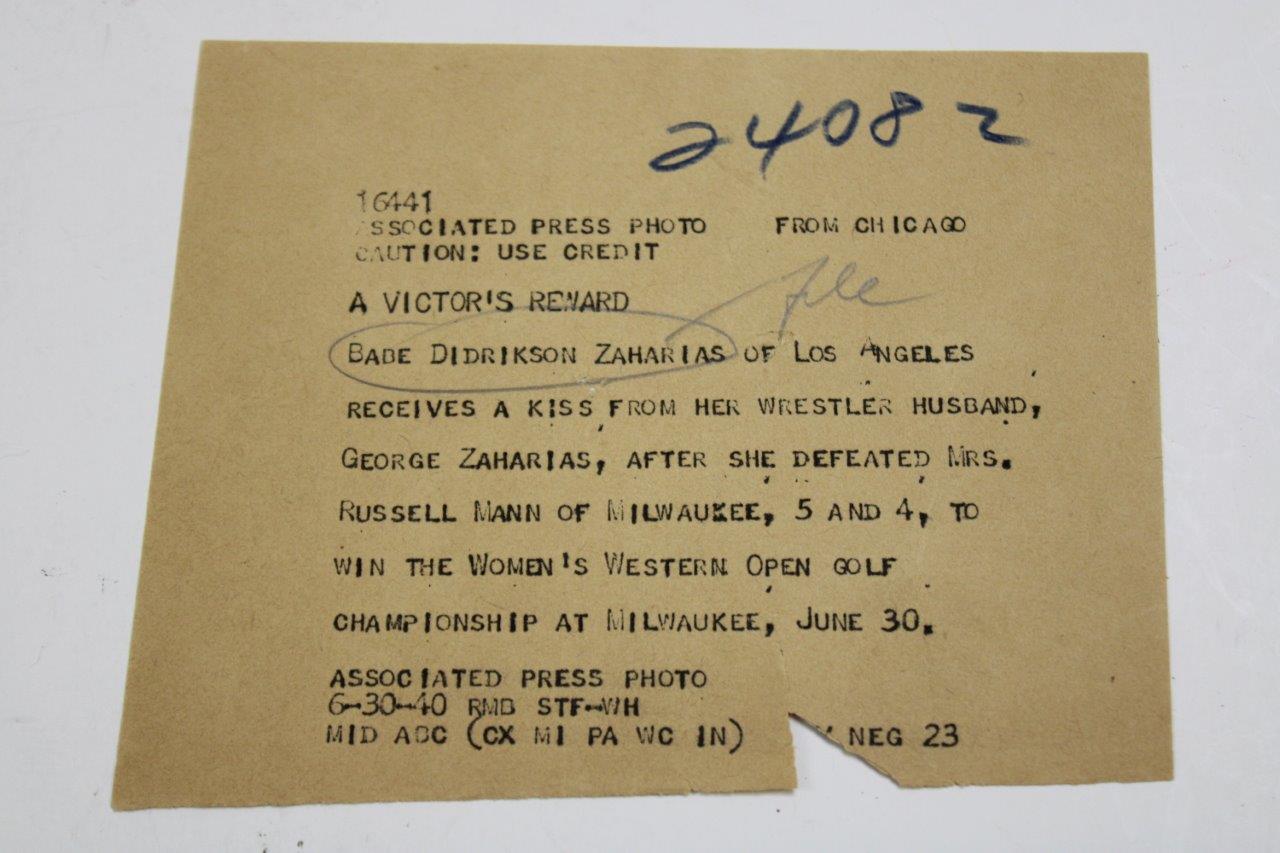 24082
16441
ASSOCIATED PRESS PHOTO FROM CHICAGO
CAUTION: USE CREDIT
A VICTOR'S REWARD
file
BABE DIDRIKSON ZAHARIAS OF LOS ANGELES
RECEIVES A KISS FROM HER WRESTLER HUSBAND,
GEORGE ZAHARIAS, AFTER SHE DEFEATED MRS.
RUSSELL MANN OF MILWAUKEE, 5 AND 4, TO
WIN THE WOMEN'S WESTERN OPEN GOLF
CHAMPIONSHIP AT MILWAUKEE, JUNE 30.
ASSOCIATED PRESS PHOTO
6-30-40 RMB STF-WH
MID ABC (CX MI PA WC IN) NEG 23